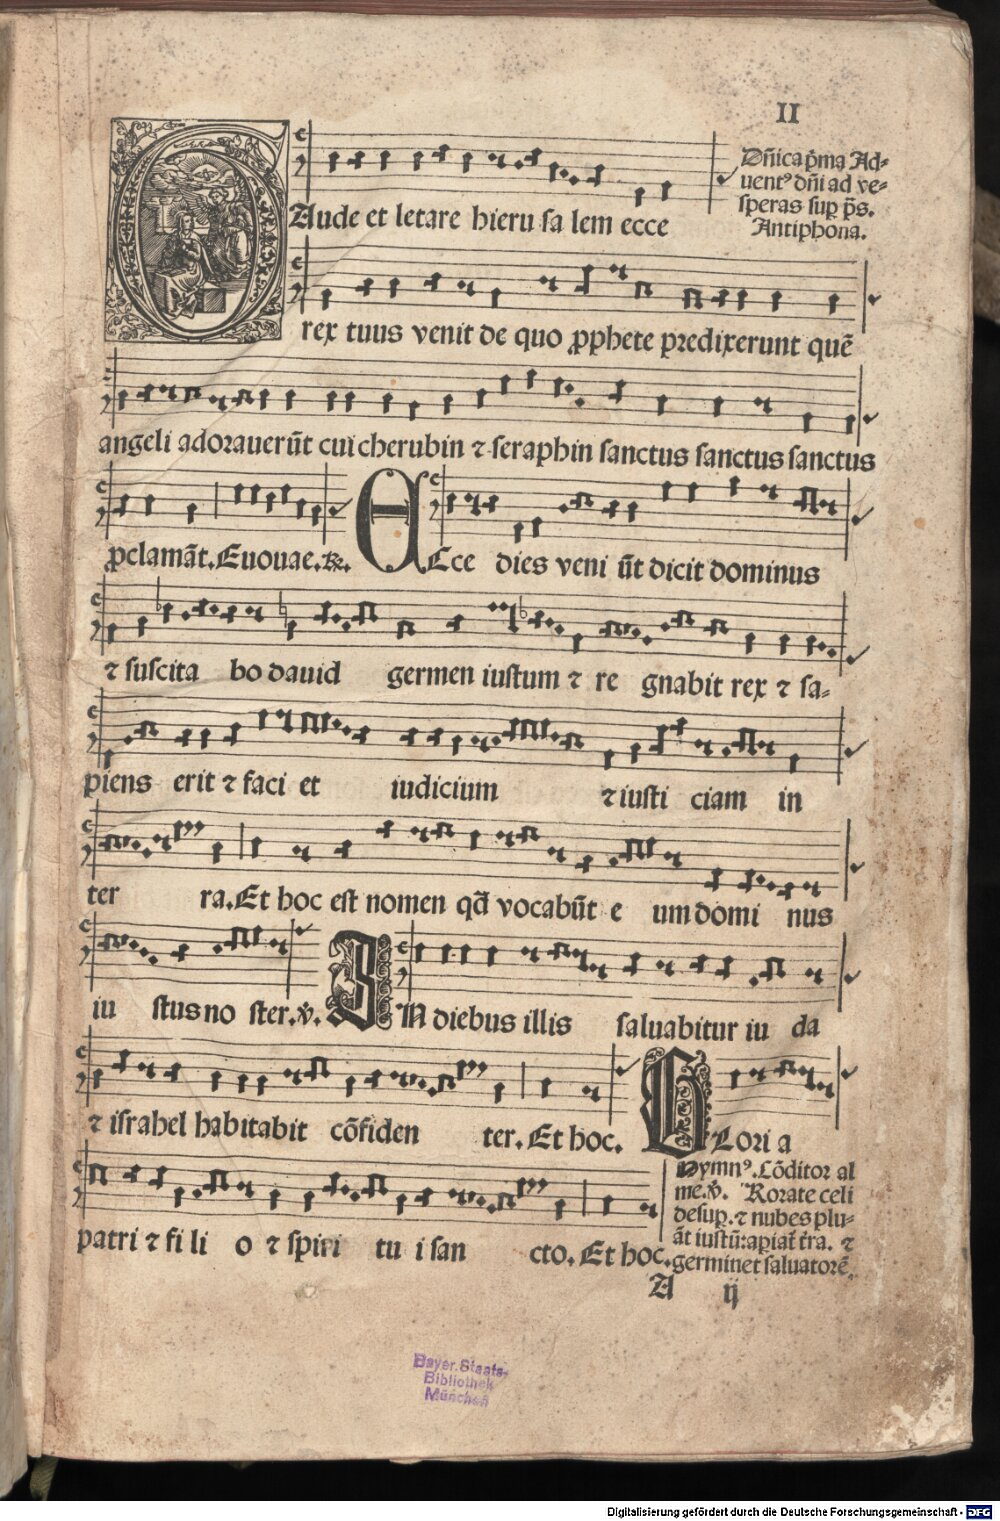 II
Dn̄ica p̄ma Ad⸗
uentꝰ dn̄i ad ve⸗
speras sup̱ p̄s.
Antiphona.
Aude et letare hieru sa lem ecce
rex tuus venit de quo ꝓphete predixerunt quē
angeli adorauerūt cui cherubin ⁊ seraphin sanctus sanctus sanctus
ꝓclamāt. Euouae. ⁊c. Ecce dies veni ūt dicit dominus
⁊ suscita bo dauid germen iustum ⁊ re gnabit rex ⁊ sa⸗
piens erit ⁊ faci et iudicium ⁊ iusti ciam in
ter ra. Et hoc est nomen qđ vocabūt e um domi nus
iu stus no ster. ℣. In diebus illis saluabitur iu da
⁊ israhel habitabit cōfiden ter. Et hoc. Glori a
patri ⁊ fi li o ⁊ spiri tu i san cto. Et hoc.
Hymnꝰ. Cōditor al
me. ℣. Rorate celi
desup̱. ⁊ nubes plu⸗
āt iustū: apiat̄ t̄ra. ⁊
germinet saluatorē.
A ij
Bayer. Staats-
Bibliothek
München
Digitalisierung gefördert durch die Deutsche Forschungsgemeinschaft - DFG